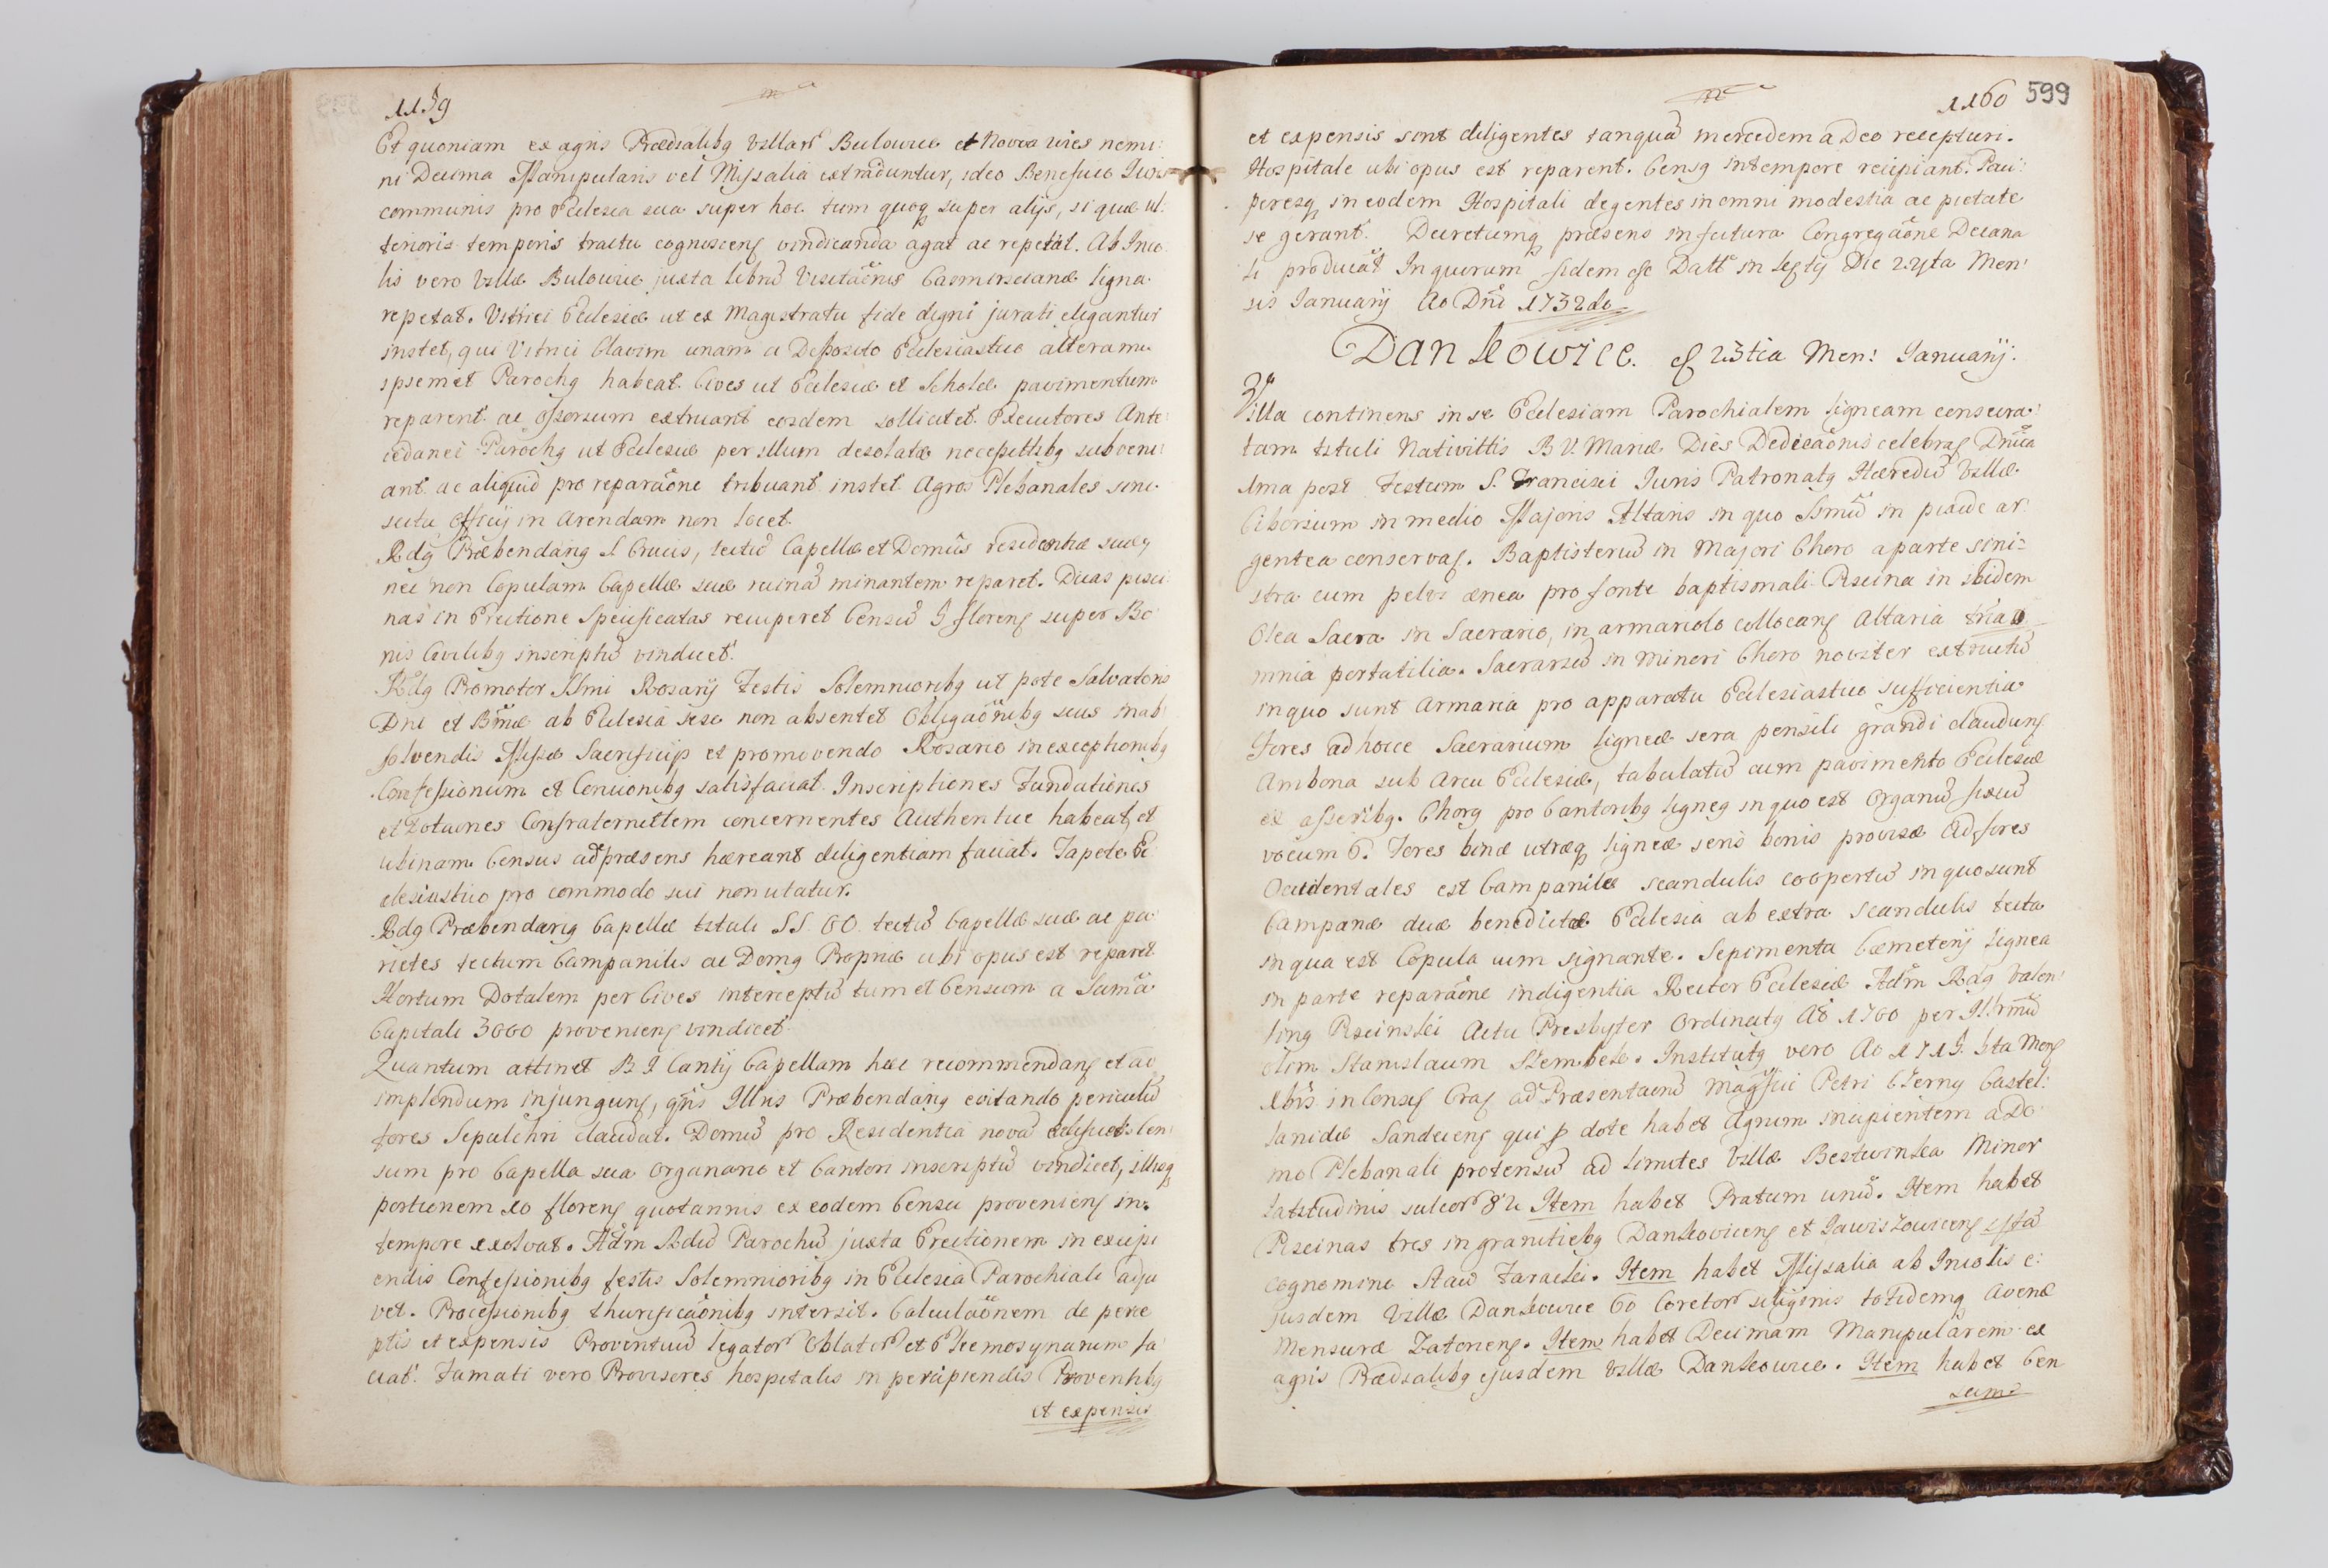 1159
Et quoniam ex agris Prædialibg Villarū Bulowice et Nova vies nemi:
ni Decima Manipularis vel Missalia extraduntur, ideo Beneficio Juris
communis pro Ecclesia sua super hoc tum quoq super alijs, si quæ ul:
terioris temporis tractu cognoscens vindicanda agat ac repetat. Ab Inco
lis vero Villæ Bulowice juxta librū Visitaõnis Casimirscianæ ligna
repetat. Vitrici Ecclesiæ ut ex Magistratu fide digni jurati eligantur
instet, qui Vitrici Clavim unam a Deposito Ecclesiastico alteram
ipsemet Parochg habeat. Cives ut Ecclesiæ et Scholæ pavimentum
reparent ac Ossorium extruant eosdem sollicitet. Executores Ante
cedanei Parochg ut Ecclesiæ per illum desolatæ necessittibg subveni:
ant ac aliquid pro reparaõne tribuant instet. Agros Plebanales sine
scitu Officij in arendam non locet.
Rdg Præbendarig S Crucis, tectū Capellæ et Domûs residentiæ suæ,
nec non Copulam Capellæ suæ ruinā minantem reparet. Duas pisci
nas in Erectione Specificatas recuperet Censū 5 florens super Bo
nis Civilibg inscriptū vindicet.
Rdg Promotor SSmi Rosarij Festis Solemnioribg ut pote Salvatoris
Dni et Bmæ ab Ecclesia sese non absentet Obligaõnibg suis in ab
solvendis Missæ Sacrificijs et promovendo Rosario in exceptionibg
Confessionum et Concionibg satisfaciat. Inscriptiones Fundationes
et Dotaones Confraternittem concernentes Authentice habeat, et
ubinam Census ad præsens hæreant diligentiam faciat. Tapete Ec
clesiastico pro commodo sui non utatur.
Rdg Præbendarig Capellæ tituli SS. OO. tectū Capellæ suæ ac pa
rietes tectum Campanilis ac Domg Propriæ ubi opus est reparet
Hortum Dotalem per Cives interceptū tum et Censum a Suma
Capitali 3000 proveniens vindicet.
Quantum attinet B J Cantij Capellam hæc recommendans et ad
implendum injungens, qñs Illius Præbendarig evitando periculū
fores Sepulchri claudat. Domū pro Residentia novā ædificet Cen
sum pro Capella sua Organario et Cantori inscriptū vindicet, illisq
portionem 10 florens quotannis ex eodem Censu proveniens in
tempore exolvat. Adm Rdū Parochū juxta Erectionem in excipi
endis Confessionibg festis Solemnioribg in Ecclesia Parochiali adju
vet. Processionibg thurificaõnibg intersit. Calculaõnem de perce
ptis et expensis Proventuū legatorū Oblatorū et Eleemosynarum fa
ciat. Famati vero Provisores hospitalis in percipiendis Proventibg
et expensis
1160 599
et expensis sint diligentes tanquā mercedem a Deo recepturi.
Hospitale ubi opus est reparent. Censg in tempore recipiant. Pau:
peresq in eodem Hospitali degentes in omni modestia ac pietate
se gerant. Decretumq præsens in futura Congregaõne Decana
li producāt In quorum fidem est Datt in Kęty Die 22da Men:
sis January Ao Dni 1732do
Dankowice. 23tia Men: January.
Villa continens in se Ecclesiam Parochialem ligneam consecra:
tam tituli Nativittis B V. Mariæ Dies Dedicaõnis celebras Dnica
1ma post Festum S. Francisci Juris Patronatg Hæredū Villæ
Ciborium in medio Majoris Altaris in quo SSmū in pixide ar:
gentea conservas. Baptisteriū in Majori Choro a parte sini:
stra cum pelvi ænea pro fonte baptismali Piscina in ibidem
Olea Sacra in Sacrario, in armariolo collocans Altaria tria o
mnia portatilia. Sacrariū in Minori Choro noviter extructū
in quo sunt Armaria pro apparatu Ecclesiastico sufficientia
Fores ad hocce Sacrarium ligneæ sera pensili grandi clauduns
Ambona sub Arcu Ecclesiæ, tabulatū cum pavimento Ecclesiæ
ex asseribg. Chorg pro Cantoribg ligneg in quo est Organū fixū
vocum 6. Fores binæ utræq ligneæ seris bonis provisæ Ad fores
Occidentales est Campanile scandulis coopertū in quo sunt
Campanæ duæ benedictæ Ecclesia ab extra scandulis tecta
in qua est Copula cum signante. Sepimenta Cæmeterij lignea
in parte reparaõne indigentia Rector Ecclesiæ Adm Rdg Valen:
ting Pscinski Actu Presbyter Ordinatg Ao 1700 per Illrmū
olim Stanislaum Szembek. Institutg vero Ao 1715. 6ta Mens
Xbris in Consis Cras ad Præsentaonē Magfici Petri Czerny Castel:
lanidæ Sandecens qui p dote habet Agrum incipientem a Do
mo Plebanali protensū ad limites Villæ Bestwinka Minor
latitudinis sulcorū 82 Item habet Pratum unū. Item habet
Piscinas tres in granitiebg Dankovicens et Jawiszovicens istā
cognomine Staw Faraski. Item habet Missalia ab Incolis e:
jusdem Villæ Dankowice 60 Coretorū siliginis totidemq avenæ
Mensuræ Zatoriens. Item habet Decimam Manipularem ex
agris Prædialibg ejusdem Villæ Dankowice. Item habet Cen
sum